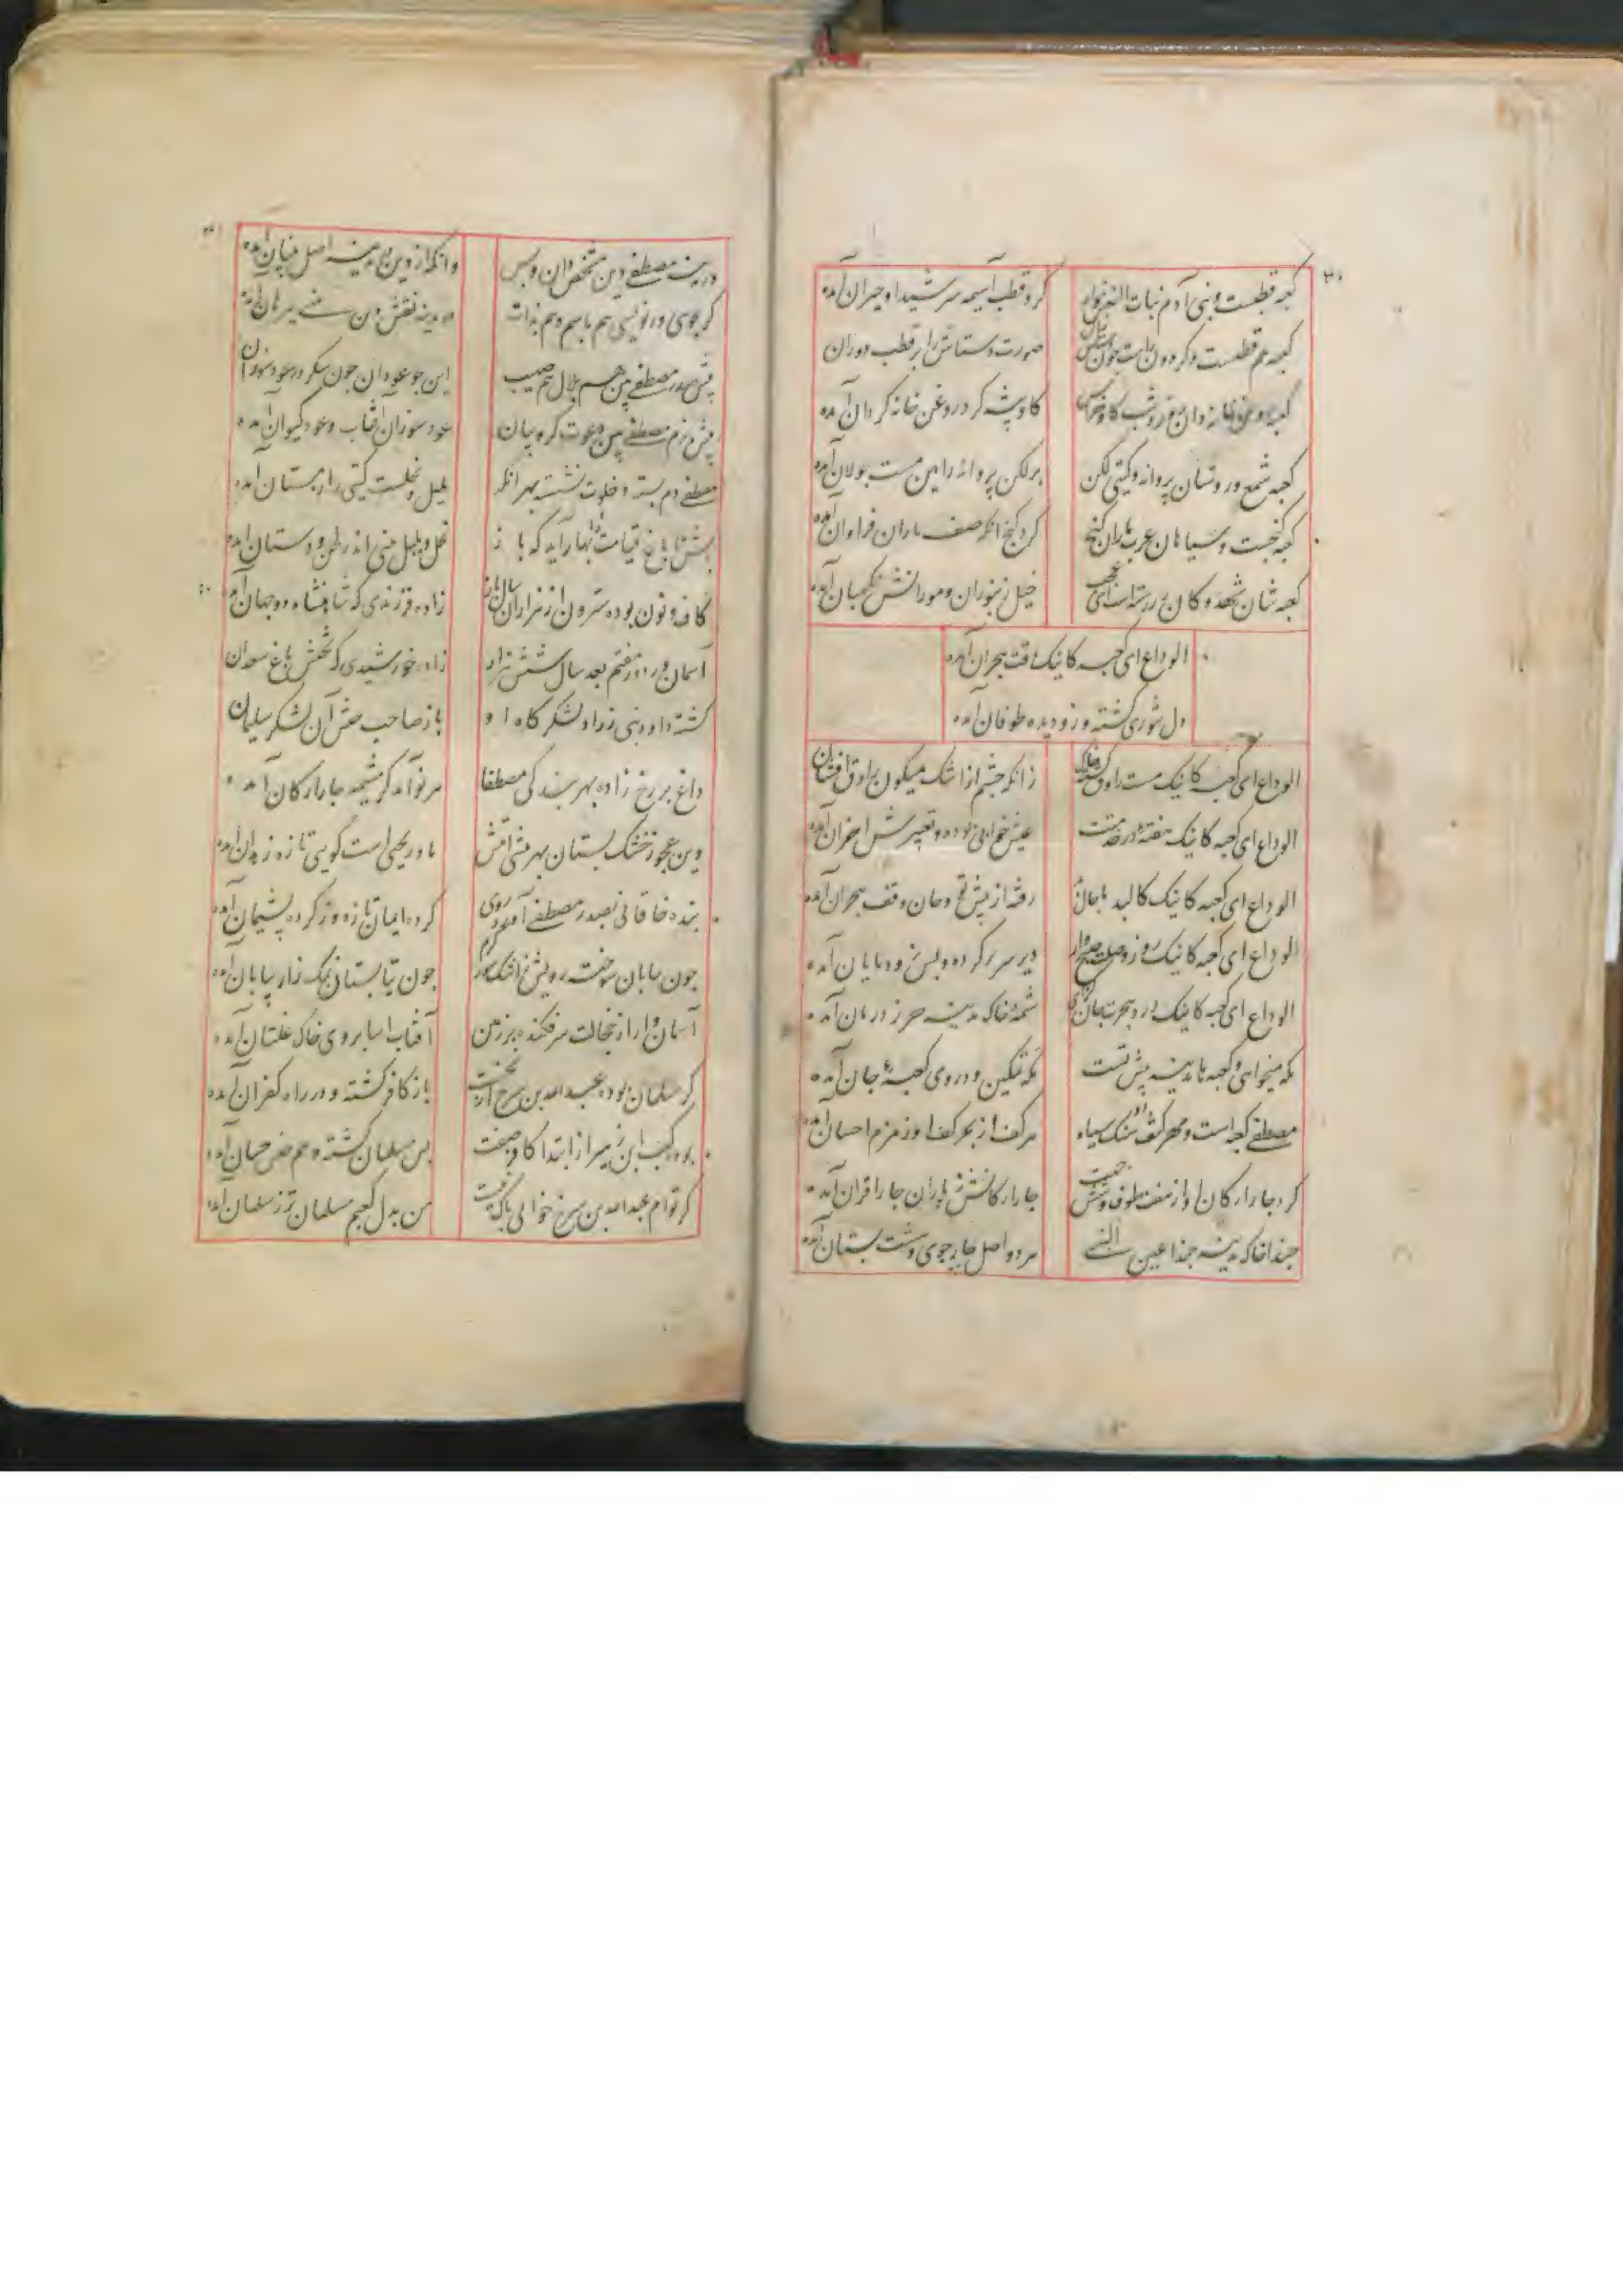 ۳۰
کعبه قطبست و بنی آدم بنات النعش وار
کرد قطب آسیمه سر شیدا و حیران آمده
کعبه هم قطبست و کردون راست چون
صورت دستاس را بر قطب دوران
کعبه روغن خانه دان و روز و شب کاو خراس
کاو پیشه کرد روغن خانه کردان آمده
کعبه شمع و روشنان پروانه و کیتی لکن
بر لکن پروانه را بین مست جولان آمده
کعبه کنجست و سیاهان عرب ماران کنج
کرد کنج انک صف ماران فراوان آمده
کعبه شان شهد و کان زر رسته است ای عجب
خیل زنبوران و مورانش نکهبان آمده
الوداع ای کعبه کاینک وقت هجران آمده
دل تنوری کشته و زو دیده طوفان آمده
الوداع ای کعبه کاینک مست راوق
زانکه چشم از اشک میکون راوق افشان
الوداع ای کعبه کاینک هفتهٔ در خدمتت
عیش خوابی بوده و تعبیرش احزان آمده
الوداع ای کعبه کاینک کالبد با جان
رفته از پیش تو و جان وقف هجران آمده
الوداع ای کعبه کاینک روز وصلت صبح وار
دیر سر بر کرده و بس زود پایان آمده
الوداع ای کعبه کاینک درد هجرت جان
شمهٔ خاک مدینه حرز درمان آمده
مکه میخواهی و کعبه ها مدینه پیش تست
مکه تمکین و در وی کعبهٔ جان آمده
مصطفی کعبه است و مهر کتف او سنک سیاه
هر کف از بحر کف او زمزم احسان آمده
کرد چار ارکان او از هفت طوف
چار ارکانش ز یاران چار اقران آمده
حبذا خاک مدینه حبذا عین النبی
هر دو اصل چار جوی و هشت بستان آمده
در مدینه مصطفی دین مشخص دان و بس
وانکه از دین در مدینه اصل بنیان آمده
کر بجویی ور نویسی هم باسم و هم بذات
مدینه نقش دین مصطفی برهان آمده
پیش صدر مصطفی بین هم بلال و هم صهیب
این چو عود آن چون شکر در عود سوزان
پیش بزم مصطفی بین دعوت کروبیان
عود سوزان آفتاب و عود کیوان آمده
مصطفی دم بسته و خلوت نشسته بهر آنک
بلبل و نحلست و کیتی را زمستان آمده
باش تا باغ قیامت را بهار آید که باز
نحل و بلبل بینی اندر لحن و دستان آمده
کاف و نون بوده سترون از هزاران سال باز
زاده فرزندی که شاهنشاه دو جهان آمده
آسمان در دور هفتم بعد سال شش هزار
زاده خورشیدی که تختش باغ سعدان
کشته داود نبی زراد لشکر کاه او
باز صاحب جیش آن لشکر سلیمان
داغ بر رخ زاده بهر بندکی مصطفا
هر نوآمد کز مشیمه چار ارکان آمده
وین عجوز خشک پستان بهر پیشی امتش
مادر یحیی است کویی تازه زهدان آمده
بنده خاقانی بصدر مصطفی آورده روی
کرده ایمان تازه وز کرده پشیمان آمده
چون بیابان سوخته رویش ز اشک شور
چون بتابستان نمک زار بیابان آمده
آسمان وار از خجالت سرفکنده بر زمین
آفتاب آسا بروی خاک غلتان آمده
کر مسلمان بود عبدالله بن سرح از نخست
باز کافر کشته و در راه کفران آمده
بود کعب ابن زهیر از ابتدا کافر صفت
پس مسلمان کشته و هم جنس حسان آمده
کر توام عبدالله بن سرح خوانی باک نیست
من بدل کعبم مسلمان تر ز سلمان آمده